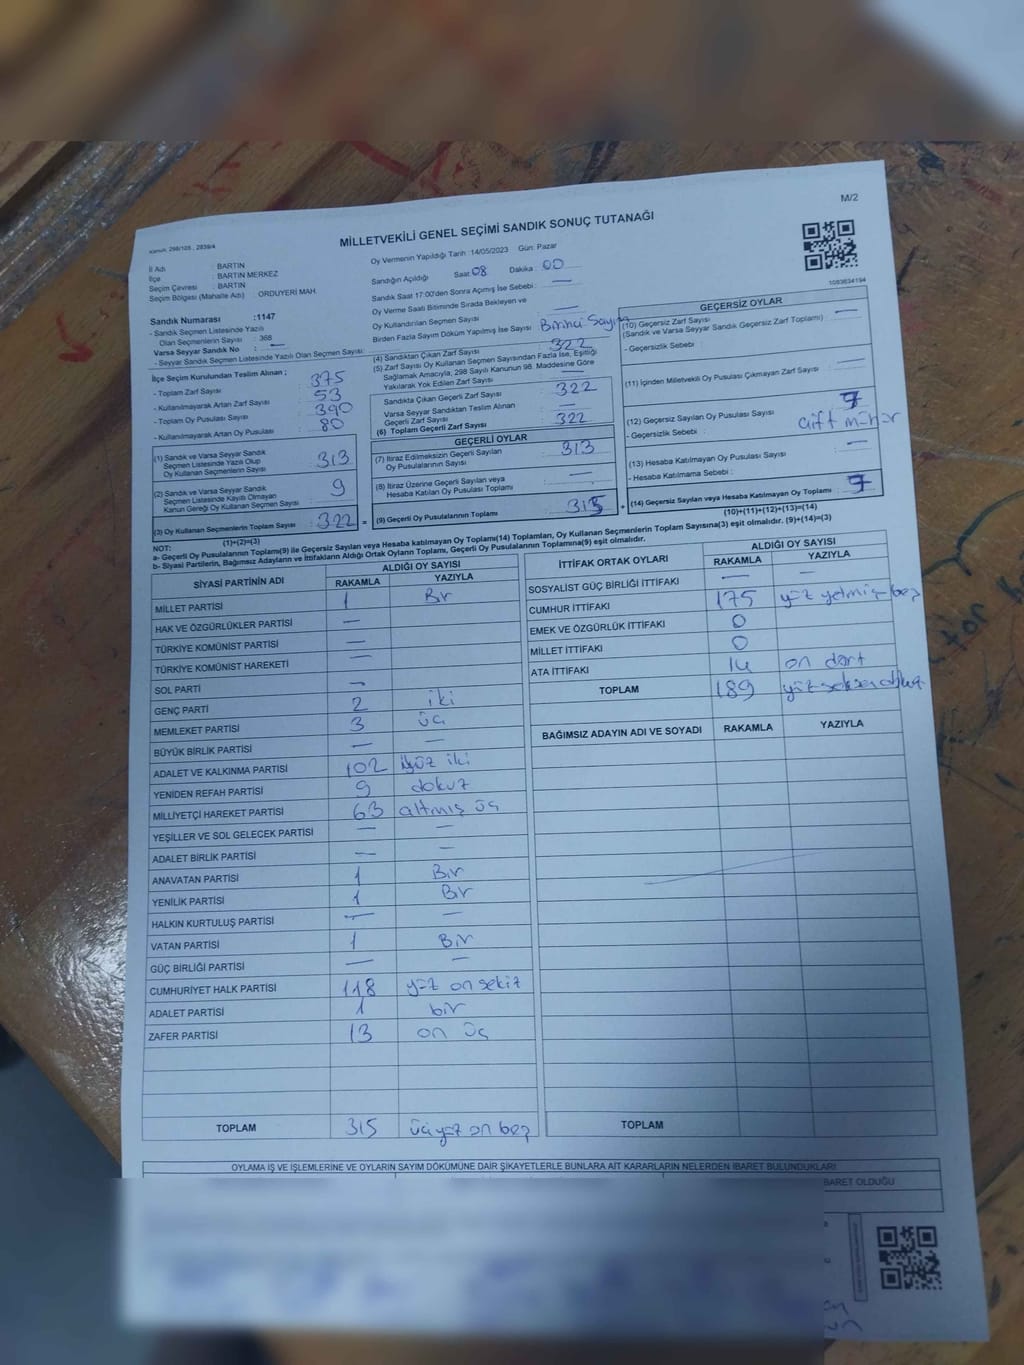 M/2
Kanun: 298/105 , 2839/4
MİLLETVEKİLİ GENEL SEÇİMİ SANDIK SONUÇ TUTANAĞI
İl Adı : BARTIN
İlçe : BARTIN MERKEZ
Seçim Çevresi : BARTIN
Seçim Bölgesi (Mahalle Adı) : ORDUYERİ MAH.
Oy Vermenin Yapıldığı Tarih :14/05/2023 Gün: Pazar
Sandığın Açıldığı Saat: 08 Dakika : 00
Sandık Saat 17:00'den Sonra Açılmış İse Sebebi : —
Oy Verme Saati Bitiminde Sırada Bekleyen ve
Oy Kullandırılan Seçmen Sayısı : —
Birden Fazla Sayım Döküm Yapılmış İse Sayısı : Birinci Sayım
1083634194
Sandık Numarası :1147
- Sandık Seçmen Listesinde Yazılı
Olan Seçmenlerin Sayısı : 368
Varsa Seyyar Sandık No : —
- Seyyar Sandık Seçmen Listesinde Yazılı Olan Seçmen Sayısı:
İlçe Seçim Kurulundan Teslim Alınan ;
- Toplam Zarf Sayısı : 375
- Kullanılmayarak Artan Zarf Sayısı : 53
- Toplam Oy Pusulası Sayısı : 390
- Kullanılmayarak Artan Oy Pusulası : 80
(1) Sandık ve Varsa Seyyar Sandık
Seçmen Listesinde Yazılı Olup
Oy Kullanan Seçmenlerin Sayısı : 313
(2) Sandık ve Varsa Seyyar Sandık
Seçmen Listesinde Kayıtlı Olmayan
Kanun Gereği Oy Kullanan Seçmen Sayısı : 9
(3) Oy Kullanan Seçmenlerin Toplam Sayısı : 322
(1)+(2)=(3)
(4) Sandıktan Çıkan Zarf Sayısı : 322
(5) Zarf Sayısı Oy Kullanan Seçmen Sayısından Fazla İse, Eşitliği
Sağlamak Amacıyla, 298 Sayılı Kanunun 98. Maddesine Göre
Yakılarak Yok Edilen Zarf Sayısı : —
Sandıkta Çıkan Geçerli Zarf Sayısı : 322
Varsa Seyyar Sandıktan Teslim Alınan
Geçerli Zarf Sayısı : —
(6) Toplam Geçerli Zarf Sayısı : 322
GEÇERLİ OYLAR
(7) İtiraz Edilmeksizin Geçerli Sayılan
Oy Pusulalarının Sayısı : 313
(8) İtiraz Üzerine Geçerli Sayılan veya
Hesaba Katılan Oy Pusulası Toplamı : —
(9) Geçerli Oy Pusulalarının Toplamı : 315
GEÇERSİZ OYLAR
(10) Geçersiz Zarf Sayısı
(Sandık ve Varsa Seyyar Sandık Geçersiz Zarf Toplamı) : —
- Geçersizlik Sebebi :
(11) İçinden Milletvekili Oy Pusulası Çıkmayan Zarf Sayısı : —
(12) Geçersiz Sayılan Oy Pusulası Sayısı : 7
- Geçersizlik Sebebi : çift mühür
(13) Hesaba Katılmayan Oy Pusulası Sayısı : —
- Hesaba Katılmama Sebebi :
(14) Geçersiz Sayılan veya Hesaba Katılmayan Oy Toplamı : 7
(10)+(11)+(12)+(13)=(14)
NOT:
a- Geçerli Oy Pusulalarının Toplamı(9) ile Geçersiz Sayılan veya Hesaba Katılmayan Oy Toplamı(14) Toplamları, Oy Kullanan Seçmenlerin Toplam Sayısına(3) eşit olmalıdır. (9)+(14)=(3)
b- Siyasi Partilerin, Bağımsız Adayların ve İttifakların Aldığı Ortak Oyların Toplamı, Geçerli Oy Pusulalarının Toplamına(9) eşit olmalıdır.
SİYASİ PARTİNİN ADI ALDIĞI OY SAYISI
RAKAMLA YAZIYLA
MİLLET PARTİSİ 1 Bir
HAK VE ÖZGÜRLÜKLER PARTİSİ —
TÜRKİYE KOMÜNİST PARTİSİ —
TÜRKİYE KOMÜNİST HAREKETİ —
SOL PARTİ —
GENÇ PARTİ 2 iki
MEMLEKET PARTİSİ 3 üç
BÜYÜK BİRLİK PARTİSİ — —
ADALET VE KALKINMA PARTİSİ 102 yüz iki
YENİDEN REFAH PARTİSİ 9 dokuz
MİLLİYETÇİ HAREKET PARTİSİ 63 altmış üç
YEŞİLLER VE SOL GELECEK PARTİSİ — —
ADALET BİRLİK PARTİSİ — —
ANAVATAN PARTİSİ 1 Bir
YENİLİK PARTİSİ 1 Bir
HALKIN KURTULUŞ PARTİSİ — —
VATAN PARTİSİ 1 Bir
GÜÇ BİRLİĞİ PARTİSİ — —
CUMHURİYET HALK PARTİSİ 118 yüz on sekiz
ADALET PARTİSİ 1 bir
ZAFER PARTİSİ 13 on üç
TOPLAM 315 üçyüz on beş
İTTİFAK ORTAK OYLARI ALDIĞI OY SAYISI
RAKAMLA YAZIYLA
SOSYALİST GÜÇ BİRLİĞİ İTTİFAKI — —
CUMHUR İTTİFAKI 175 yüz yetmiş beş
EMEK VE ÖZGÜRLÜK İTTİFAKI 0
MİLLET İTTİFAKI 0
ATA İTTİFAKI 14 on dört
TOPLAM 189 yüz seksen dokuz
BAĞIMSIZ ADAYIN ADI VE SOYADI RAKAMLA YAZIYLA
TOPLAM
OYLAMA İŞ VE İŞLEMLERİNE VE OYLARIN SAYIM DÖKÜMÜNE DAİR ŞİKAYETLERLE BUNLARA AİT KARARLARIN NELERDEN İBARET BULUNDUKLARI
BARET OLDUĞU
for